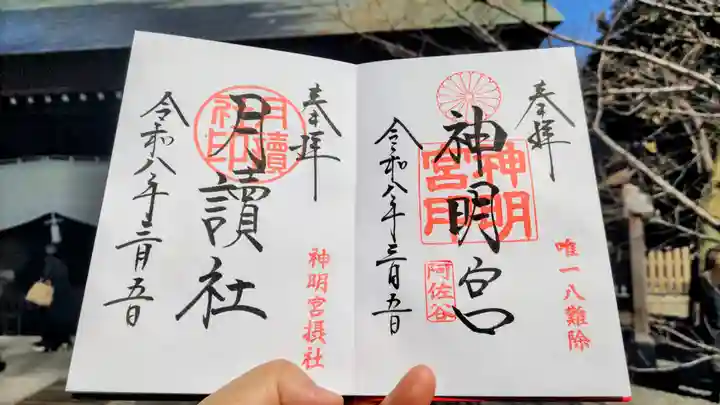 奉拝
唯一八難除
神明宮
神明宮
阿佐谷
令和八年三月五日
奉拝
神明宮摂社
月讀社
月讀社印
令和八年三月五日